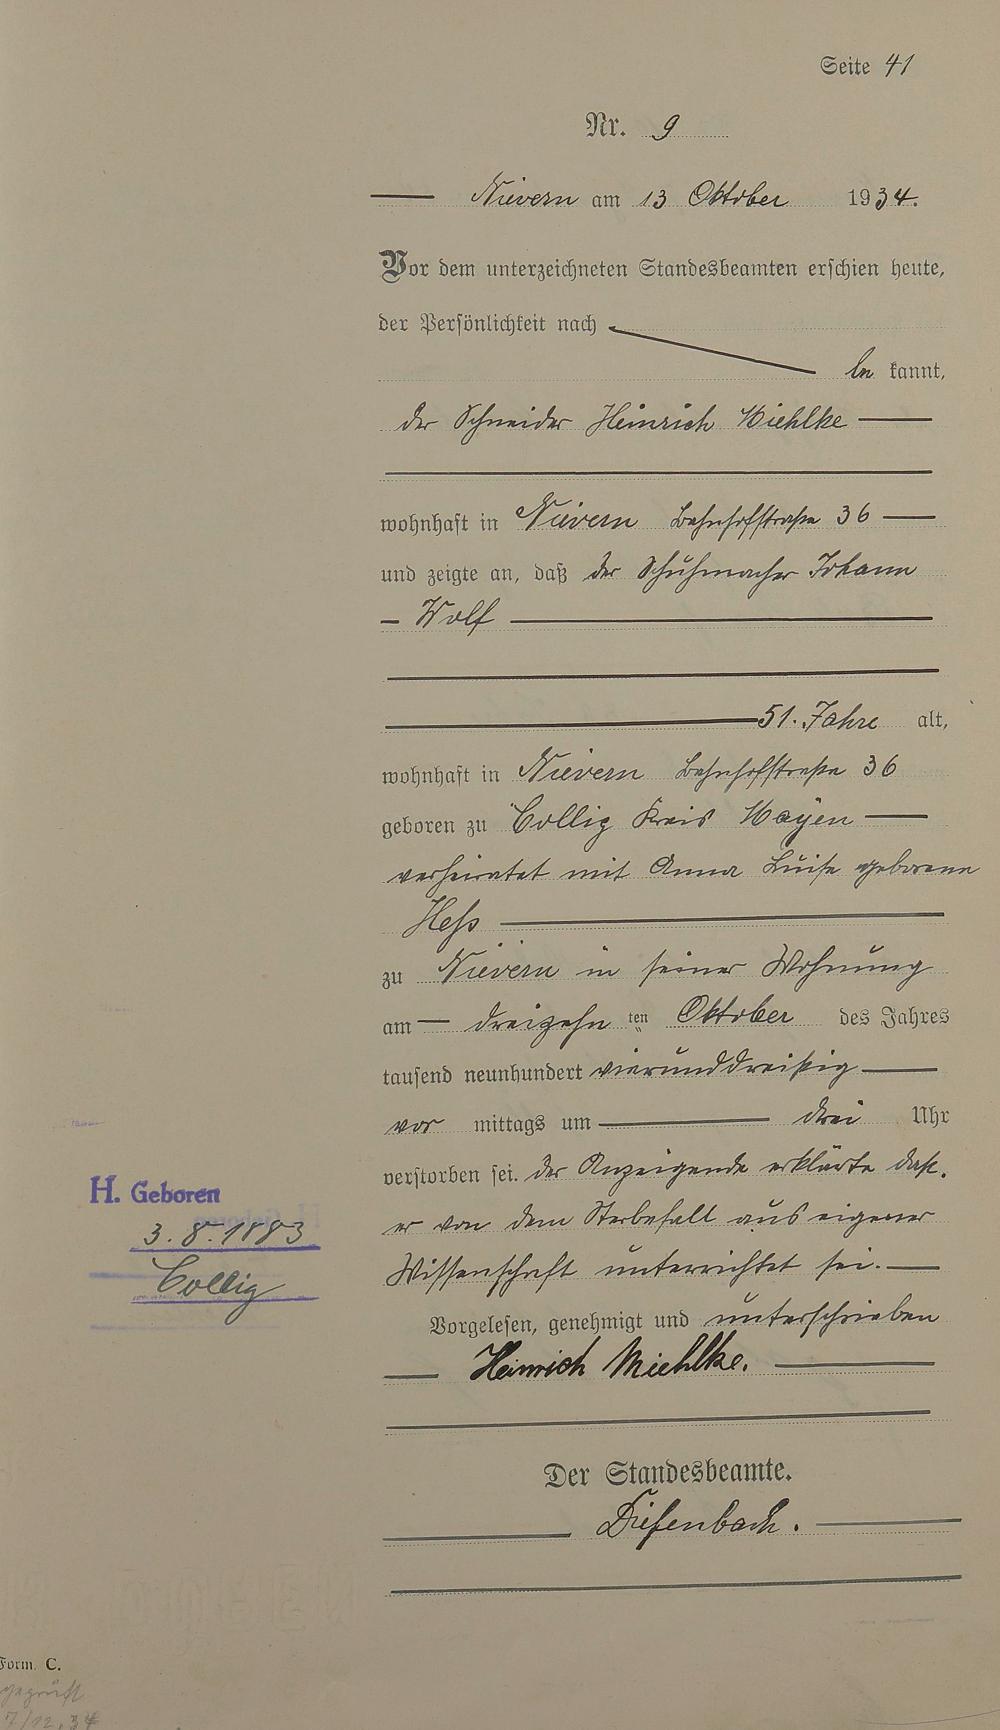 Seite 41
Nr. 9
Nievern am 13 Oktober 1934.
Vor dem unterzeichneten Standesbeamten erschien heute,
der Persönlichkeit nach
be kannt,
der Schneider Heinrich Miehlke
wohnhaft in Nievern Bahnhofstraße 36
und zeigte an, daß der Schuhmacher Johann
Wolf
51. Jahre alt,
wohnhaft in Nievern Bahnhofstraße 36
geboren zu Collig Kreis Mayen
verheiratet mit Anna Luise geborene
Heß
zu Nievern in seiner Wohnung
am dreizehn ten Oktober des Jahres
tausend neunhundert vierunddreißig
vor mittags um drei Uhr
verstorben sei. Der Anzeigende erklärte daß.
er von dem Sterbefall aus eigener
Wissenschaft unterrichtet sei.
Vorgelesen, genehmigt und unterschrieben
Heinrich Miehlke.
Der Standesbeamte.
Diefenbach.
H. Geboren
3.8.1883
Collig
Form. C.
geprüft
7/12.34